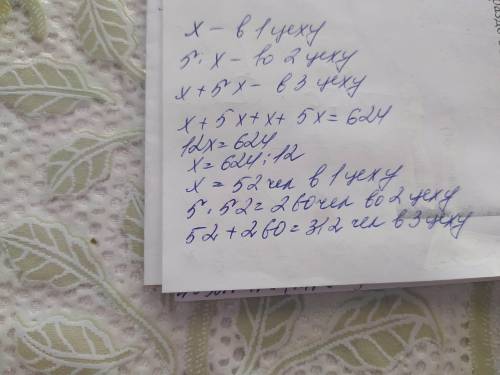 х - в 1 цеху
5·х - во 2 цеху
х+5х - в 3 цеху
х+5х+х+5х=624
12х=624
х=624:12
х=52 чел в 1 цеху
5·52=260 чел во 2 цеху
52+260=312 чел в 3 цеху